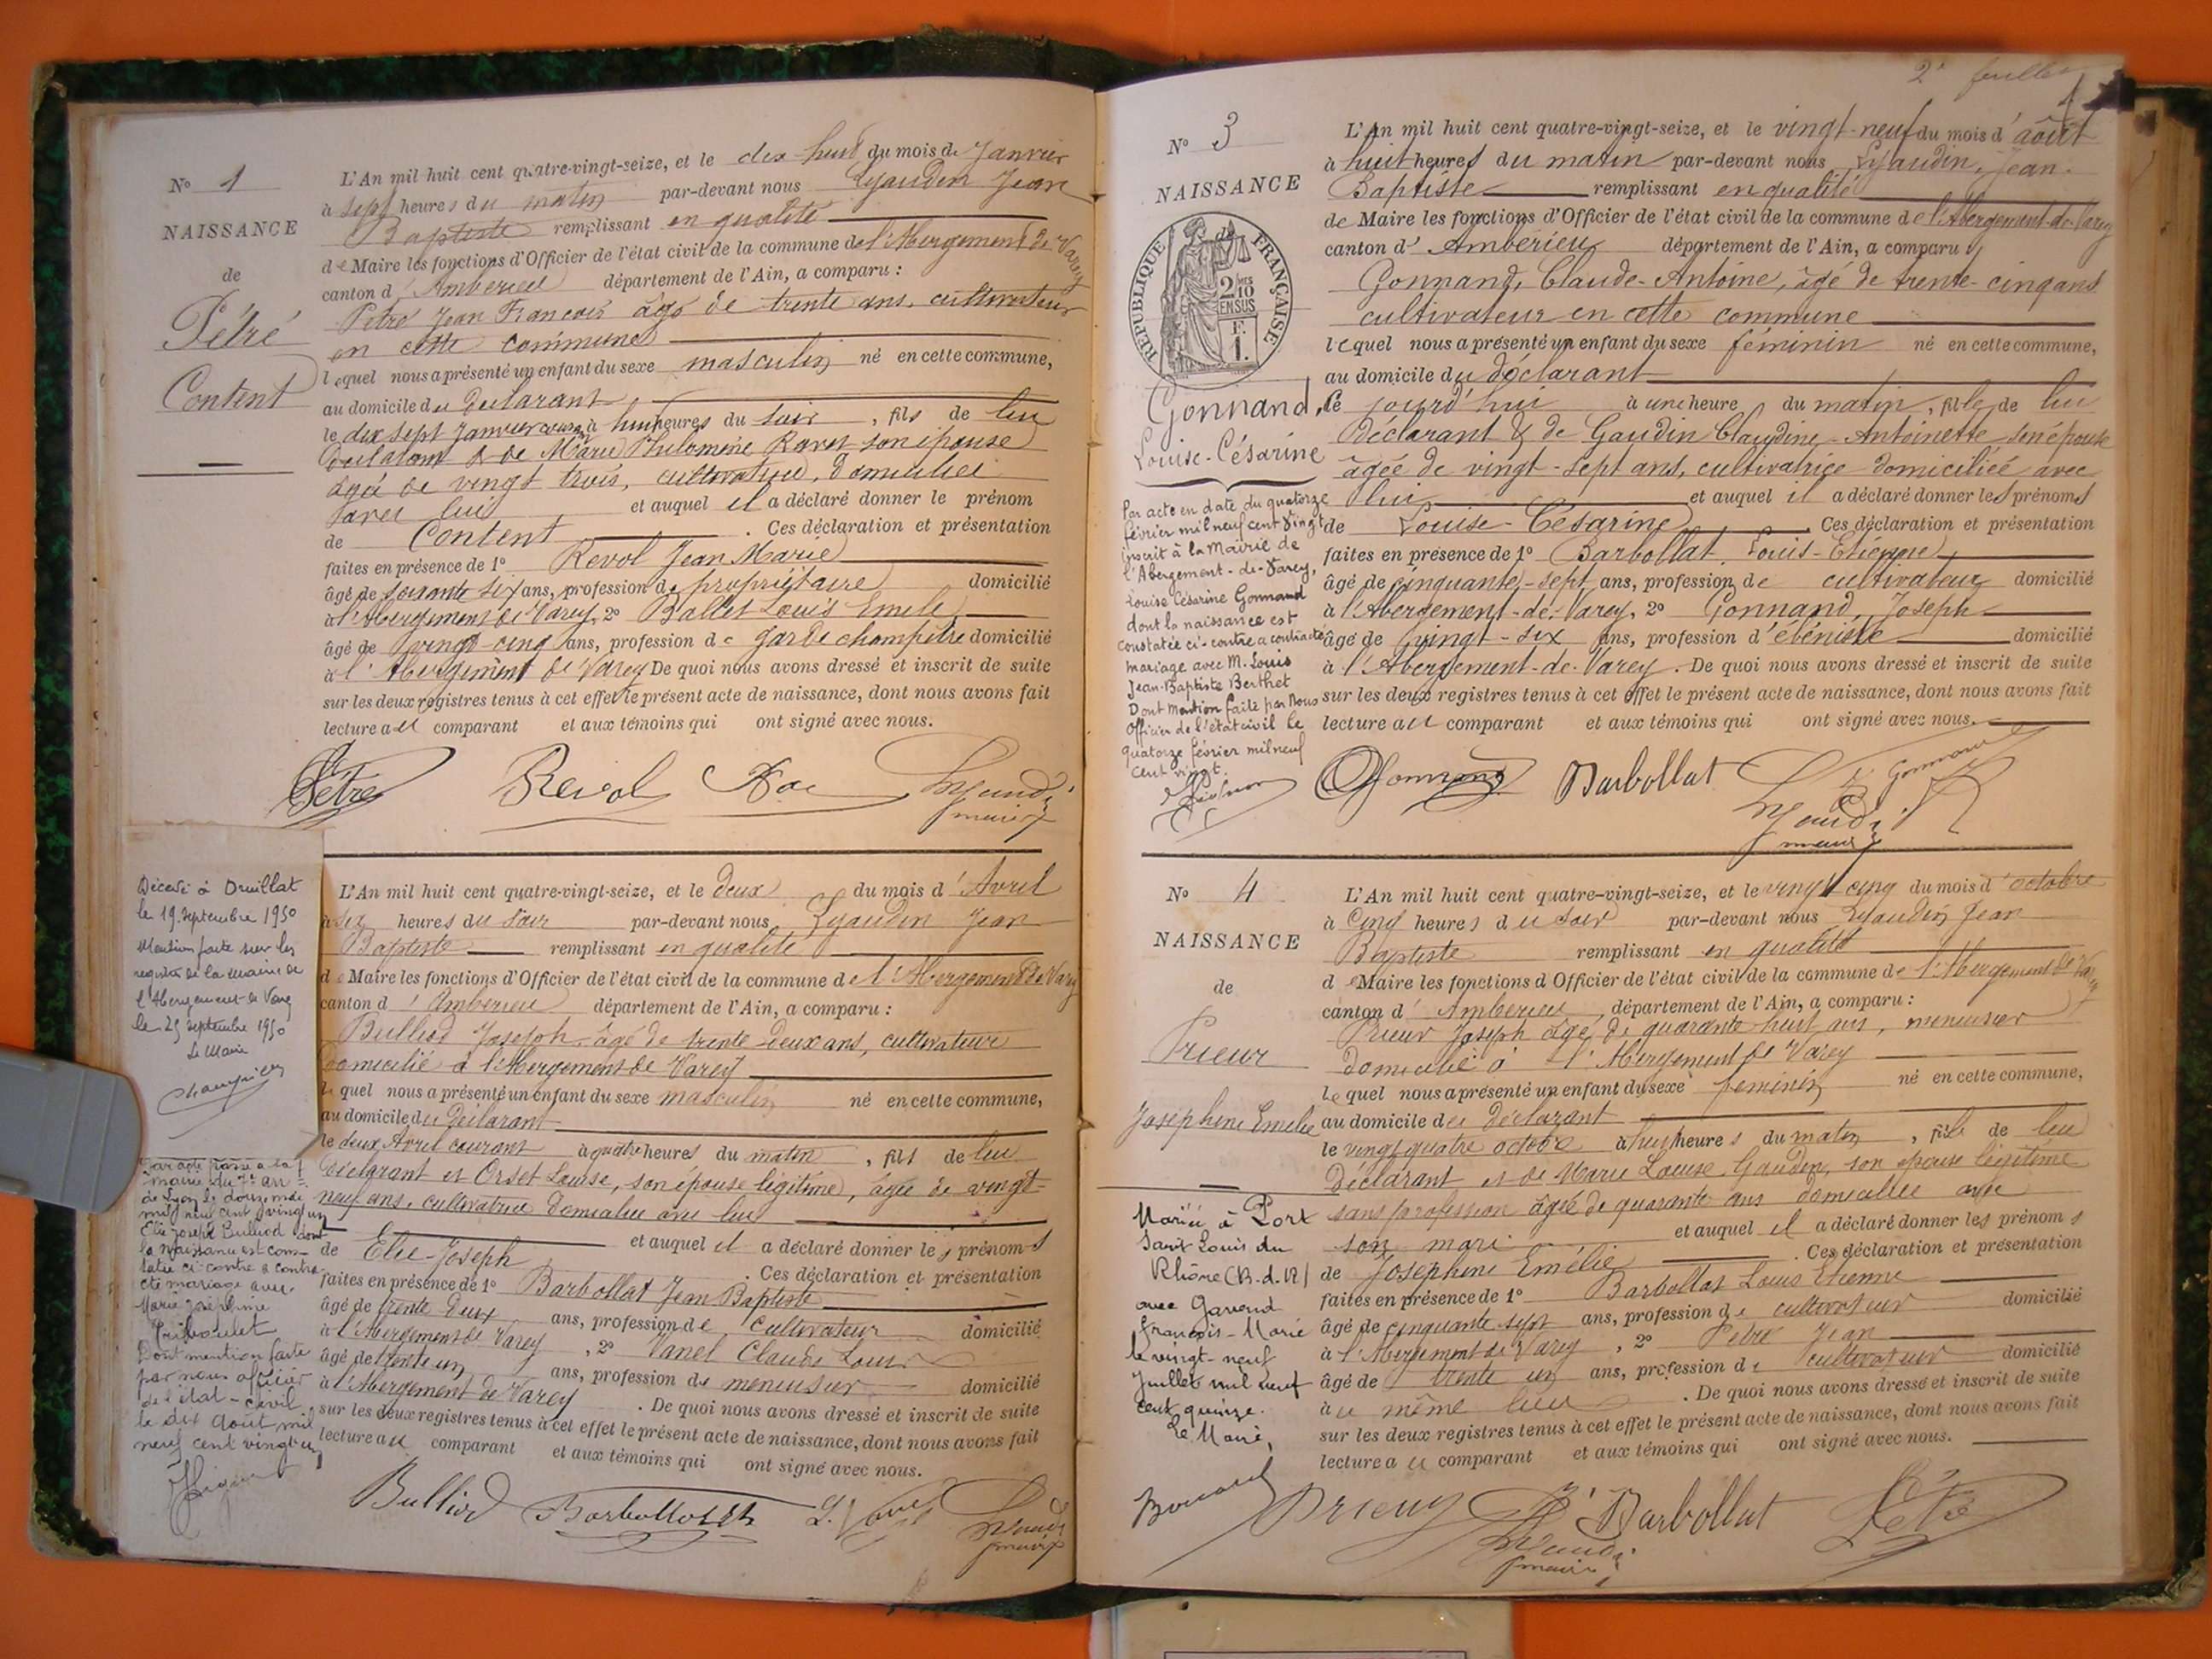 N° 1
NAISSANCE
de
Pétré
Content
L'An mil huit cent quatre-vingt-seize, et le dix huit du mois de Janvier
à sept heures du matin par-devant nous Lyaudin Jean
Baptiste remplissant en qualité
de Maire les fonctions d'Officier de l'état civil de la commune de l'Abergement de Varey
canton d'Amberieu département de l'Ain, a comparu :
Pétré Jean François âgé de trente ans, cultivateur
en cette commune
lequel nous a présenté un enfant du sexe masculin né en cette commune,
au domicile du déclarant
le dix sept Janvier courant à huit heures du soir, fils de lui
déclarant & de Marie Philomène Ravet son épouse
âgée de vingt trois, cultivatrice, domiciliée
avec lui et auquel il a déclaré donner le prénom
de Content. Ces déclaration et présentation
faites en présence de 1° Revol Jean Marie
âgé de soixante six ans, profession de propriétaire domicilié
à l'Abergement de Varey, 2° Ballet Louis Emile
âgé de vingt-cinq ans, profession de garde champêtre domicilié
à l'Abergement de Varey De quoi nous avons dressé et inscrit de suite
sur les deux registres tenus à cet effet le présent acte de naissance, dont nous avons fait
lecture au comparant et aux témoins qui ont signé avec nous.
Pétré Revol Lyaudin
maire
Décédé à Druillat
le 19 septembre 1950
Mention faite sur les
registres de la mairie de
l'Abergement de Varey
le 25 septembre 1950
Le Maire
Par acte passé à la
mairie du 7e arr
de Lyon le douze mai
mil neuf cent vingt un
Elie Joseph Bulliod dont
la naissance est cons-
tatée ci-contre a contra-
cté mariage avec
Marie Joséphine
Triboulet
Dont mention faite
par nous officier
de l'état-civil
le dix août mil
neuf cent vingt un
L'An mil huit cent quatre-vingt-seize, et le deux du mois d'Avril
à six heures du soir par-devant nous Lyaudin Jean
Baptiste remplissant en qualité
de Maire les fonctions d'Officier de l'état civil de la commune de l'Abergement de Varey
canton d'Amberieu département de l'Ain, a comparu :
Bulliod Joseph âgé de trente-deux ans, cultivateur
domicilié à l'Abergement de Varey
lequel nous a présenté un enfant du sexe masculin né en cette commune,
au domicile du déclarant
le deux Avril courant à quatre heures du matin, fils de lui
déclarant et Orset Louise, son épouse légitime, âgée de vingt-
neuf ans, cultivatrice domiciliée avec lui
et auquel il a déclaré donner les prénoms
de Elie-Joseph. Ces déclaration et présentation
faites en présence de 1° Barbollat Jean Baptiste
âgé de trente deux ans, profession de cultivateur domicilié
à l'Abergement de Varey, 2° Vanel Claude Louis
âgé de trente un ans, profession de menuisier domicilié
à l'Abergement de Varey. De quoi nous avons dressé et inscrit de suite
sur les deux registres tenus à cet effet le présent acte de naissance, dont nous avons fait
lecture au comparant et aux témoins qui ont signé avec nous.
Bulliod Barbollat L. Vanel Lyaudin
maire
2e feuillet
N° 3
NAISSANCE
de
RÉPUBLIQUE FRANÇAISE
2/10 EN SUS
F. 1.
Gonnand,
Louise-Césarine
Par acte en date du quatorze
février mil neuf cent vingt
inscrit à la Mairie de
l'Abergement-de-Varey,
Louise Césarine Gonnand
dont la naissance est
constatée ci-contre a contracté
mariage avec M. Louis
Jean-Baptiste Berthet
Dont mention faite par Nous
Officier de l'état civil le
quatorze février mil neuf
cent vingt.
L'An mil huit cent quatre-vingt-seize, et le vingt-neuf du mois d'août
à huit heures du matin par-devant nous Lyaudin, Jean-
Baptiste remplissant en qualité
de Maire les fonctions d'Officier de l'état civil de la commune de l'Abergement-de-Varey
canton d'Ambérieu département de l'Ain, a comparu
Gonnand, Claude-Antoine, âgé de trente-cinq ans
cultivateur en cette commune
lequel nous a présenté un enfant du sexe féminin né en cette commune,
au domicile du déclarant
Ce jourd'hui à une heure du matin, fille de lui
déclarant & de Gaudin Claudine-Antoinette son épouse
âgée de vingt-sept ans, cultivatrice domiciliée avec
lui et auquel il a déclaré donner les prénoms
de Louise-Césarine. Ces déclaration et présentation
faites en présence de 1° Barbollat, Louis-Etienne
âgé de cinquante-sept ans, profession de cultivateur domicilié
à l'Abergement-de-Varey, 2° Gonnand, Joseph
âgé de vingt-six ans, profession d'ébéniste domicilié
à l'Abergement-de-Varey. De quoi nous avons dressé et inscrit de suite
sur les deux registres tenus à cet effet le présent acte de naissance, dont nous avons fait
lecture au comparant et aux témoins qui ont signé avec nous.
Gonnand Barbollat J Gonnand
Lyaudin
maire
N° 4
NAISSANCE
de
Prieur
Joséphine Emélie
Mariée à Port
Saint Louis du
Rhône (B.-d.-R)
avec Gavend
François-Marie
le vingt-neuf
Juillet mil neuf
cent quinze.
Le Maire,
L'An mil huit cent quatre-vingt-seize, et le vingt cinq du mois d'octobre
à cinq heures du soir par-devant nous Lyaudin Jean
Baptiste remplissant en qualité
de Maire les fonctions d'Officier de l'état civil de la commune de l'Abergement de Varey
canton d'Amberieu, département de l'Ain, a comparu :
Prieur Joseph âgé de quarante huit ans, menuisier
domicilié à l'Abergement de Varey
lequel nous a présenté un enfant du sexe féminin né en cette commune,
au domicile du déclarant
le vingt quatre octobre à huit heures du matin, fille de lui
Déclarant et de Marie Louise Gaudin, son épouse légitime
sans profession âgée de quarante ans domiciliée avec
son mari et auquel il a déclaré donner les prénoms
de Joséphine Emélie. Ces déclaration et présentation
faites en présence de 1° Barbollat Louis Etienne
âgé de cinquante-sept ans, profession de cultivateur domicilié
à l'Abergement de Varey, 2° Pétré Jean
âgé de trente un ans, profession de cultivateur domicilié
au même lieu. De quoi nous avons dressé et inscrit de suite
sur les deux registres tenus à cet effet le présent acte de naissance, dont nous avons fait
lecture au comparant et aux témoins qui ont signé avec nous.
Prieur Barbollat Pétré
Lyaudin
maire